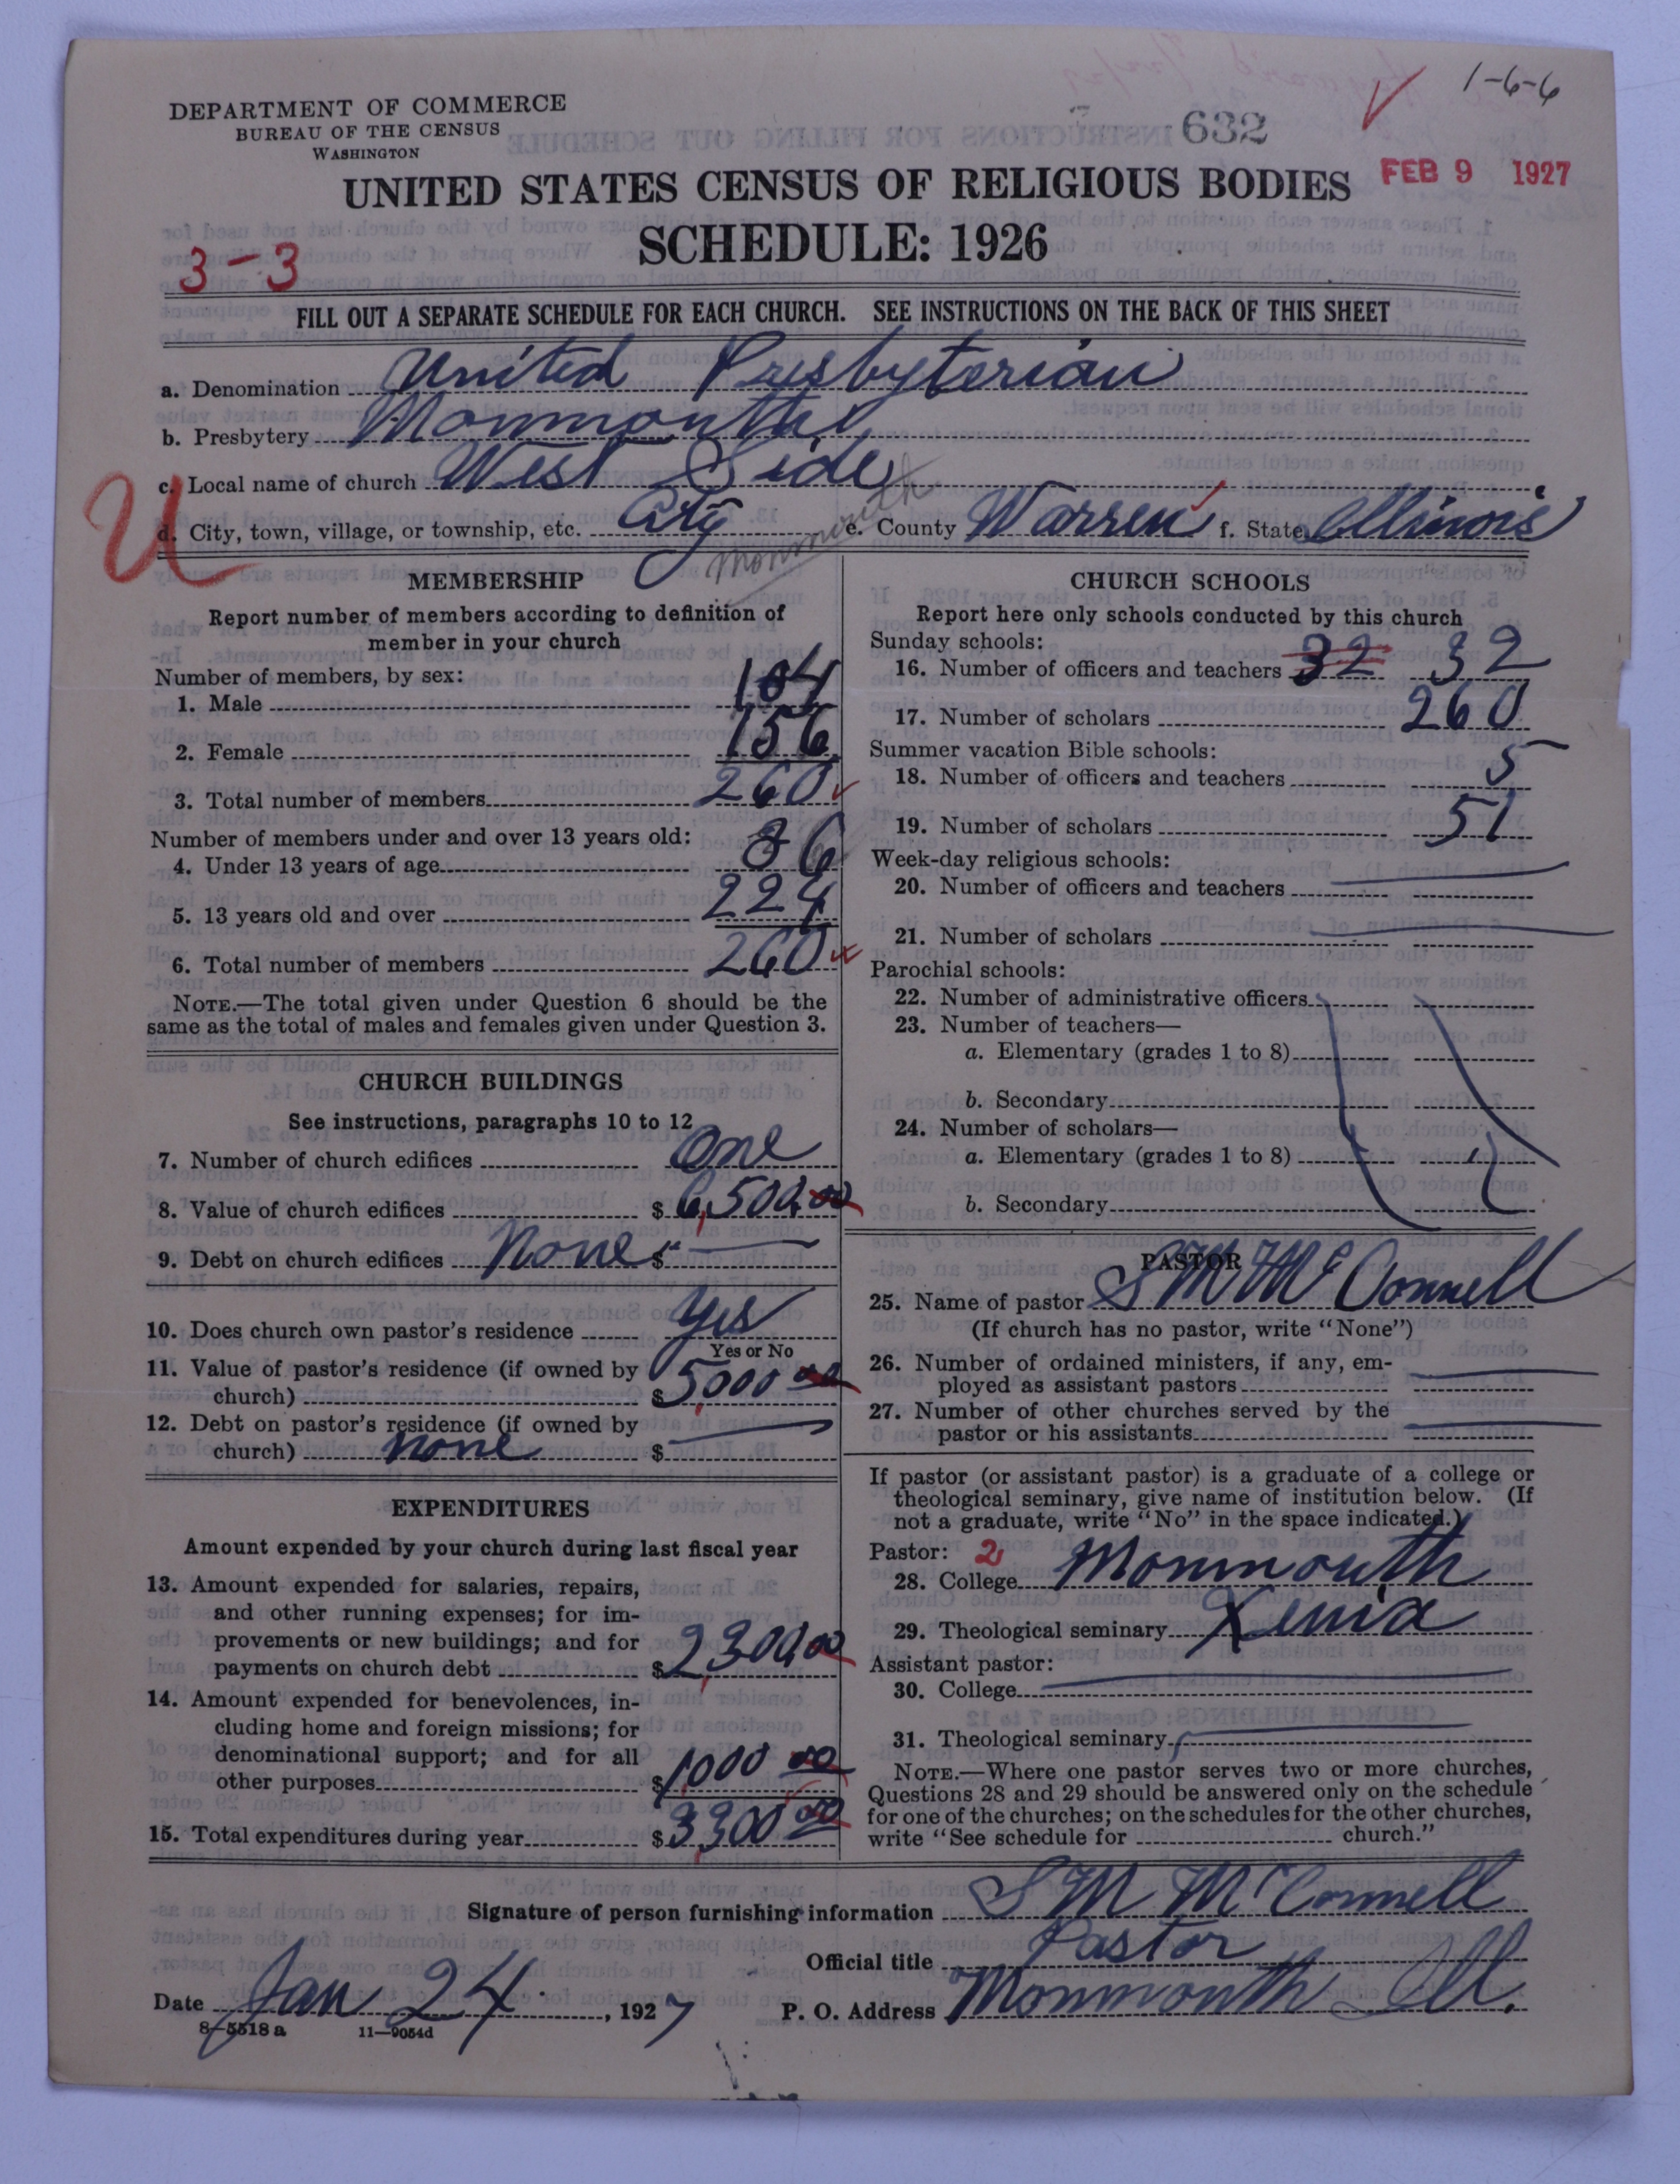 1-6-6
DEPARTMENT OF COMMERCE
BUREAU OF THE CENSUS
WASHINGTON
632
FEB 9 1927
UNITED STATES CENSUS OF RELIGIOUS BODIES
SCHEDULE: 1926
3-3
FILL OUT A SEPARATE SCHEDULE FOR EACH CHURCH. SEE INSTRUCTIONS ON THE BACK OF THIS SHEET
a. Denomination United Presbyterian
b. Presbytery Monmouth
c. Local name of church West Side
U
d. City, town, village, or township, etc. City Monmouth e. County Warren f. State Illinois
MEMBERSHIP
Report number of members according to definition of
member in your church
Number of members, by sex:
1. Male 104
2. Female 156
3. Total number of members 260
Number of members under and over 13 years old:
4. Under 13 years of age 36
5. 13 years old and over 224
6. Total number of members 260
NOTE.—The total given under Question 6 should be the
same as the total of males and females given under Question 3.
CHURCH BUILDINGS
See instructions, paragraphs 10 to 12
7. Number of church edifices One
8. Value of church edifices $6,500.00
9. Debt on church edifices None $
10. Does church own pastor's residence Yes
Yes or No
11. Value of pastor's residence (if owned by
church) $5000 00
12. Debt on pastor's residence (if owned by
church) none $
EXPENDITURES
Amount expended by your church during last fiscal year
13. Amount expended for salaries, repairs,
and other running expenses; for im-
provements or new buildings; and for
payments on church debt $2,300.00
14. Amount expended for benevolences, in-
cluding home and foreign missions; for
denominational support; and for all
other purposes $1000 00
15. Total expenditures during year $3,300 00
CHURCH SCHOOLS
Report here only schools conducted by this church
Sunday schools:
16. Number of officers and teachers 32 32
17. Number of scholars 260
Summer vacation Bible schools:
18. Number of officers and teachers 5
19. Number of scholars 51
Week-day religious schools:
20. Number of officers and teachers
21. Number of scholars
Parochial schools:
22. Number of administrative officers
23. Number of teachers—
a. Elementary (grades 1 to 8)
b. Secondary
24. Number of scholars—
a. Elementary (grades 1 to 8)
b. Secondary
PASTOR
25. Name of pastor S M McConnell
(If church has no pastor, write "None")
26. Number of ordained ministers, if any, em-
ployed as assistant pastors
27. Number of other churches served by the
pastor or his assistants
If pastor (or assistant pastor) is a graduate of a college or
theological seminary, give name of institution below. (If
not a graduate, write "No" in the space indicated.)
Pastor: 2
28. College Monmouth
29. Theological seminary Xenia
Assistant pastor:
30. College
31. Theological seminary
NOTE.—Where one pastor serves two or more churches,
Questions 28 and 29 should be answered only on the schedule
for one of the churches; on the schedules for the other churches,
write "See schedule for church."
Signature of person furnishing information S M McConnell
Official title Pastor
Date Jan 24, 1927 P. O. Address Monmouth Ill.
8-5518 a 11-9054d